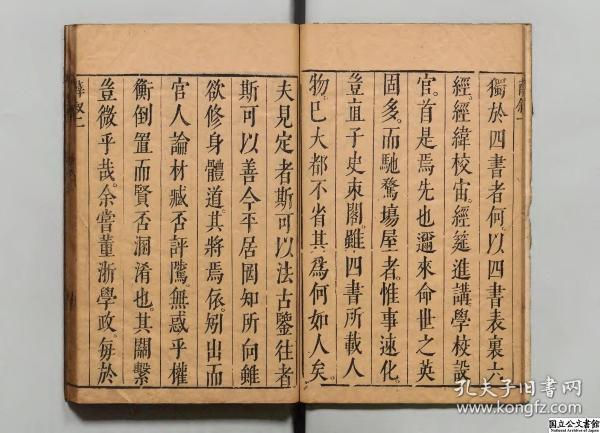 獨於四書者何。以四書表裏六
經。經緯校宙。經筵進講學校設
官。首是焉先也邇來命世之英
固多。而馳騖場屋者。惟事速化。
豈直子史束閣。雖四書所載人
物。巳大都不省其為何如人矣。
夫見定者斯可以法古鑒往者
斯可以善今平居罔知所向雖
欲修身體道。其將焉依。矧出而
官人論材臧否評隲。無惑乎權
衡倒置而賢否溷淆也其關繫
豈微乎哉。余嘗董浙學政。每於
薛叙一
薛叙二
孔夫子旧书网
www.kongfz.com
国立公文書館
National Archives of Japan